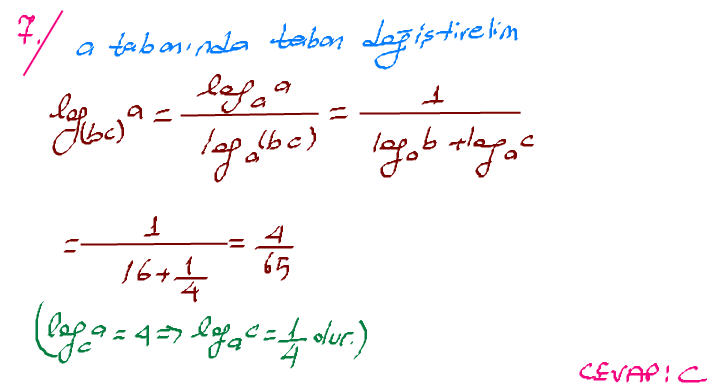 7./ a tabanında taban değiştirelim
log_(bc) a = log_a a / log_a (bc) = 1 / (log_a b + log_a c)
= 1 / (16 + 1/4) = 4/65
(log_c a = 4 => log_a c = 1/4 dur.)
CEVAP: C